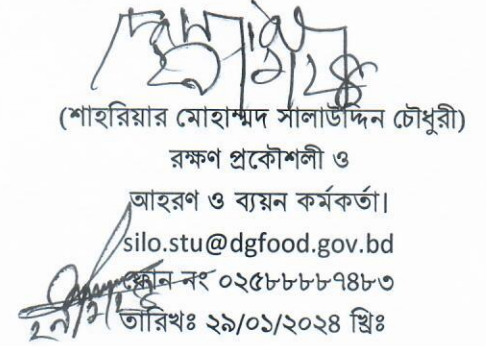 (শাহরিয়ার মোহাম্মদ সালাউদ্দিন চৌধুরী)
রক্ষণ প্রকৌশলী ও
আহরণ ও ব্যয়ন কর্মকর্তা।
silo.stu@dgfood.gov.bd
ফোন নং ০২৫৮৮৮৮৭৪৮৩
তারিখঃ ২৯/০১/২০২৪ খ্রিঃ